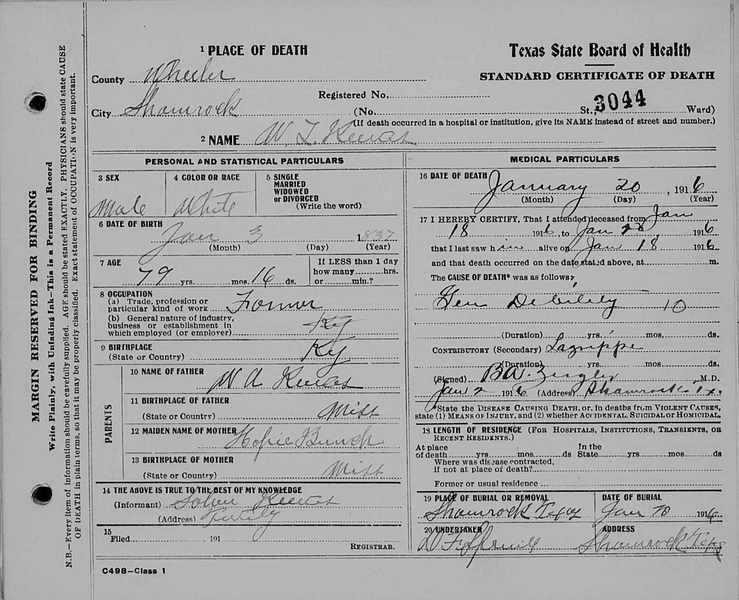 1 PLACE OF DEATH
County Wheeler
City Shamrock
Texas State Board of Health
STANDARD CERTIFICATE OF DEATH
Registered No.
(No. St., 3044 Ward)
(If death occurred in a hospital or institution, give its NAME instead of street and number.)
2 NAME W.
PERSONAL AND STATISTICAL PARTICULARS
3 SEX
Male
4 COLOR OR RACE
White
5 SINGLE
MARRIED
WIDOWED
or DIVORCED
(Write the word)
6 DATE OF BIRTH
Jan 3 1837
(Month) (Day) (Year)
7 AGE
79 yrs. mos. 16 ds.
If LESS than 1 day
how many hrs.
or min.?
8 OCCUPATION
(a) Trade, profession or
particular kind of work Farmer
(b) General nature of industry,
business or establishment in
which employed (or employer) Ky
9 BIRTHPLACE
(State or Country) Ky
PARENTS
10 NAME OF FATHER
W A
11 BIRTHPLACE OF FATHER
(State or Country) Miss
12 MAIDEN NAME OF MOTHER
13 BIRTHPLACE OF MOTHER
(State or Country) Miss
14 THE ABOVE IS TRUE TO THE BEST OF MY KNOWLEDGE
(Informant)
(Address)
15
Filed 191
REGISTRAR.
C498—Class 1
MEDICAL PARTICULARS
16 DATE OF DEATH
January 20, 1916
(Month) (Day) (Year)
17 I HEREBY CERTIFY, That I attended deceased from Jan
18 1916, to Jan 20 1916
that I last saw him alive on Jan 18 1916
and that death occurred on the date stated above, at m.
The CAUSE OF DEATH* was as follows:
Gen Debility 10
(Duration) yrs. mos. ds.
CONTRIBUTORY (Secondary) Lagrippe
(Duration) yrs. mos. ds.
(Signed) B.W. Zeigler M.D.
Jan 2 1916 (Address) Shamrock Tx.
*State the DISEASE CAUSING DEATH, or, in deaths from VIOLENT CAUSES,
state (1) MEANS OF INJURY, and (2) whether ACCIDENTAL, SUICIDAL or HOMICIDAL.
18 LENGTH OF RESIDENCE (FOR HOSPITALS, INSTITUTIONS, TRANSIENTS, OR
RECENT RESIDENTS.)
At place of death yrs. mos. ds. In the State yrs. mos. ds.
Where was disease contracted,
if not at place of death?
Former or usual residence
19 PLACE OF BURIAL OR REMOVAL
Shamrock Texas
DATE OF BURIAL
Jan 20 1916
20 UNDERTAKER
ADDRESS
Shamrock Texas
MARGIN RESERVED FOR BINDING
Write Plainly, with Unfading Ink—This is a Permanent Record
N.B.—Every item of information should be carefully supplied. AGE should be stated EXACTLY. PHYSICIANS should state CAUSE
OF DEATH in plain terms, so that it may be properly classified. Exact statement of OCCUPATION is very important.